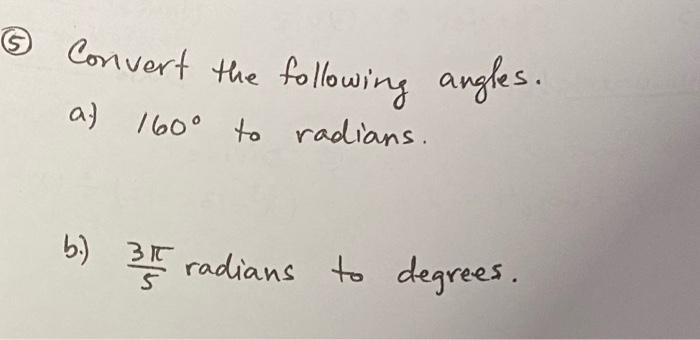 ⑤ Convert the following angles.
a.) 160° to radians.
b.) 3π/5 radians to degrees.